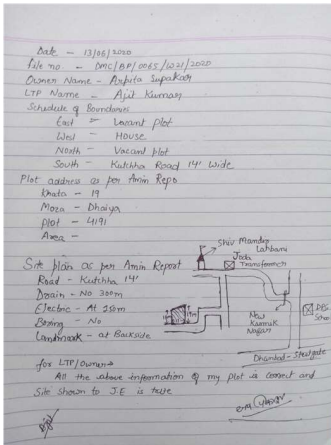 Date - 13/06/2020
File no - DMC/BP/0065/W21/2020
Owner Name - Arpita Supakar
LTP Name - Ajit Kumar
Schedule of Boundaries
East - Vacant plot
West - House
North - Vacant plot
South - Kutchha Road 14' Wide
Plot address as per Amin Repo
Khata - 19
Moza - Dhaiya
plot - 4191
Area -
Shiv Mandir
Lahbani
Joda
Transformer
Site plan as per Amin Report
Road - Kutchha 14'
Drain - No 300m
Electric - At 25m
Boring - No
Landmark - at Backside
New
Karmik
Nagar
DPS
School
Dhanbad - Steelgate
for LTP/Owner→
All the above information of my plot is correct and
Site shown to J.E is true
Ajit